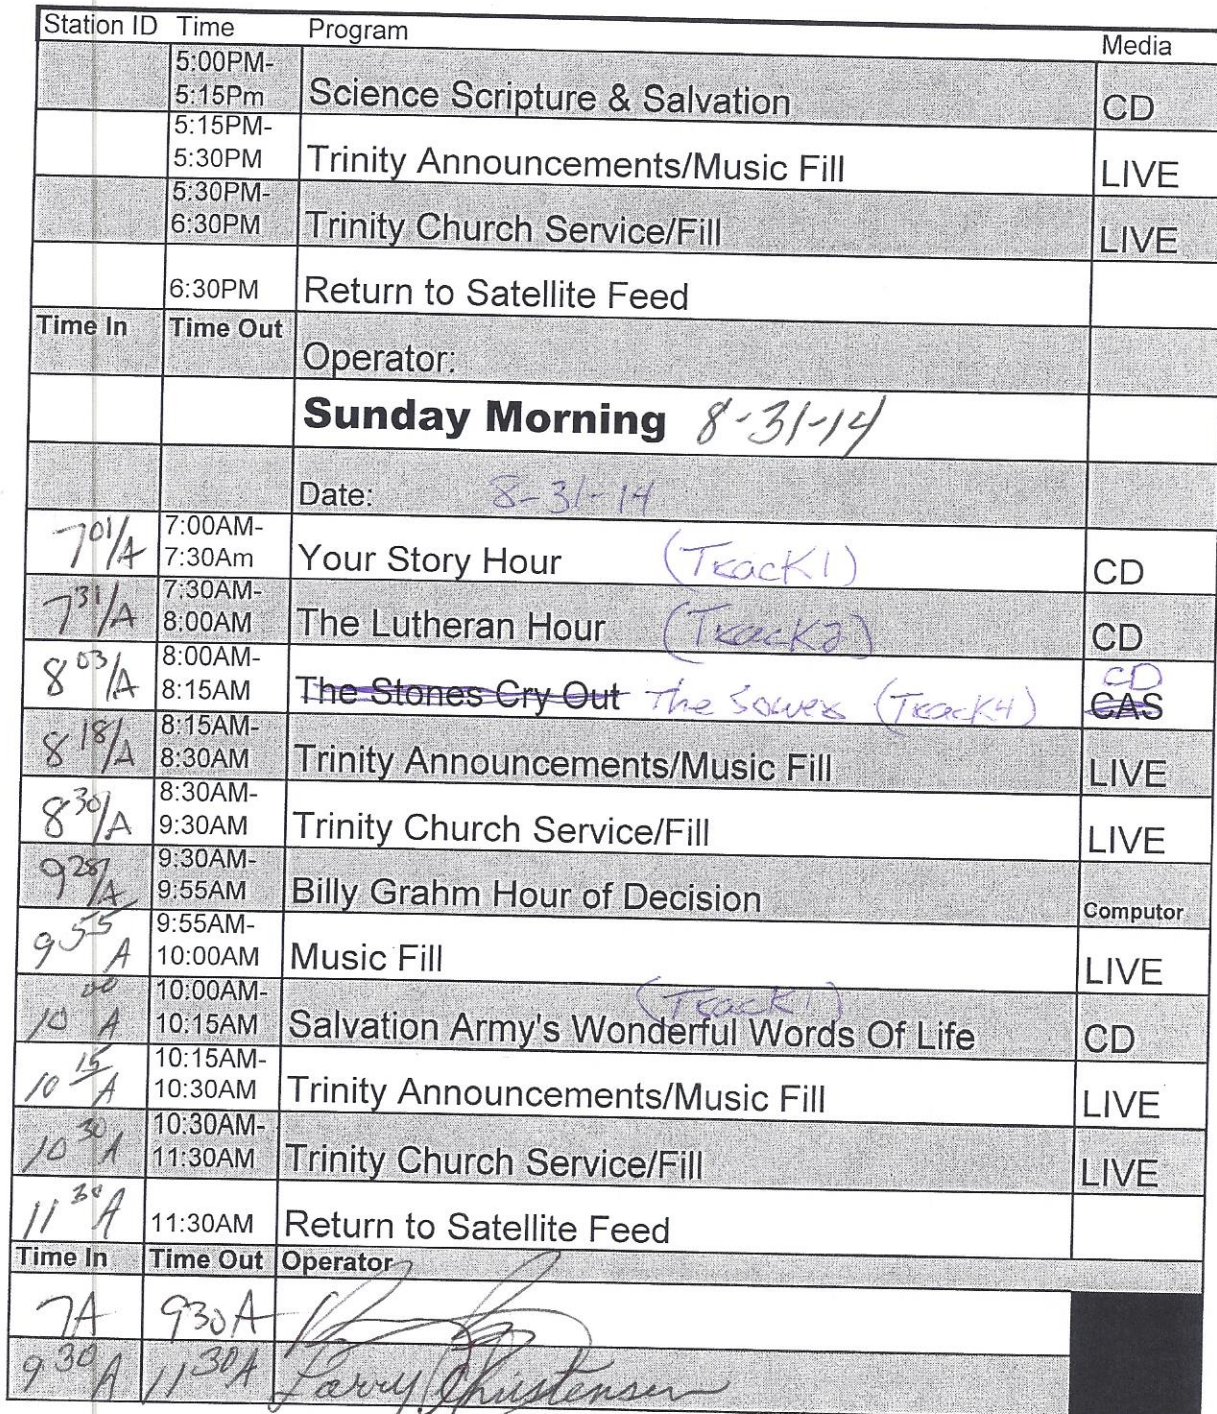 Station ID Time Program Media
5:00PM-
5:15Pm Science Scripture & Salvation CD
5:15PM-
5:30PM Trinity Announcements/Music Fill LIVE
5:30PM-
6:30PM Trinity Church Service/Fill LIVE
6:30PM Return to Satellite Feed
Time In Time Out Operator:
Sunday Morning 8-31-14
Date: 8-31-14
7:00AM-
7 01/A 7:30Am Your Story Hour (Track 1) CD
7:30AM-
7 31/A 8:00AM The Lutheran Hour (Track 2) CD
8:00AM- CD
8 03/A 8:15AM The Stones Cry Out The Sower (Track 4) CAS
8:15AM-
8 18/A 8:30AM Trinity Announcements/Music Fill LIVE
8:30AM-
8 30/A 9:30AM Trinity Church Service/Fill LIVE
9:30AM-
9 28/A 9:55AM Billy Grahm Hour of Decision Computor
9:55AM-
9 55 A 10:00AM Music Fill LIVE
10:00AM- (Track 1)
10 00 A 10:15AM Salvation Army's Wonderful Words Of Life CD
10:15AM-
10 15 A 10:30AM Trinity Announcements/Music Fill LIVE
10:30AM-
10 30 A 11:30AM Trinity Church Service/Fill LIVE
11 30 A 11:30AM Return to Satellite Feed
Time In Time Out Operator
7A 930A
9 30 A 11 30 A Larry Christensen